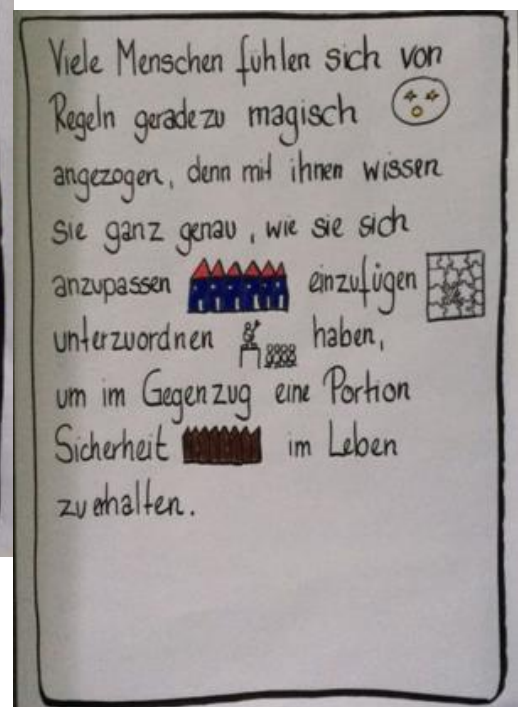 Viele Menschen fühlen sich von
Regeln geradezu magisch
angezogen, denn mit ihnen wissen
sie ganz genau, wie sie sich
anzupassen einzufügen
unterzuordnen haben,
um im Gegenzug eine Portion
Sicherheit im Leben
zu erhalten.